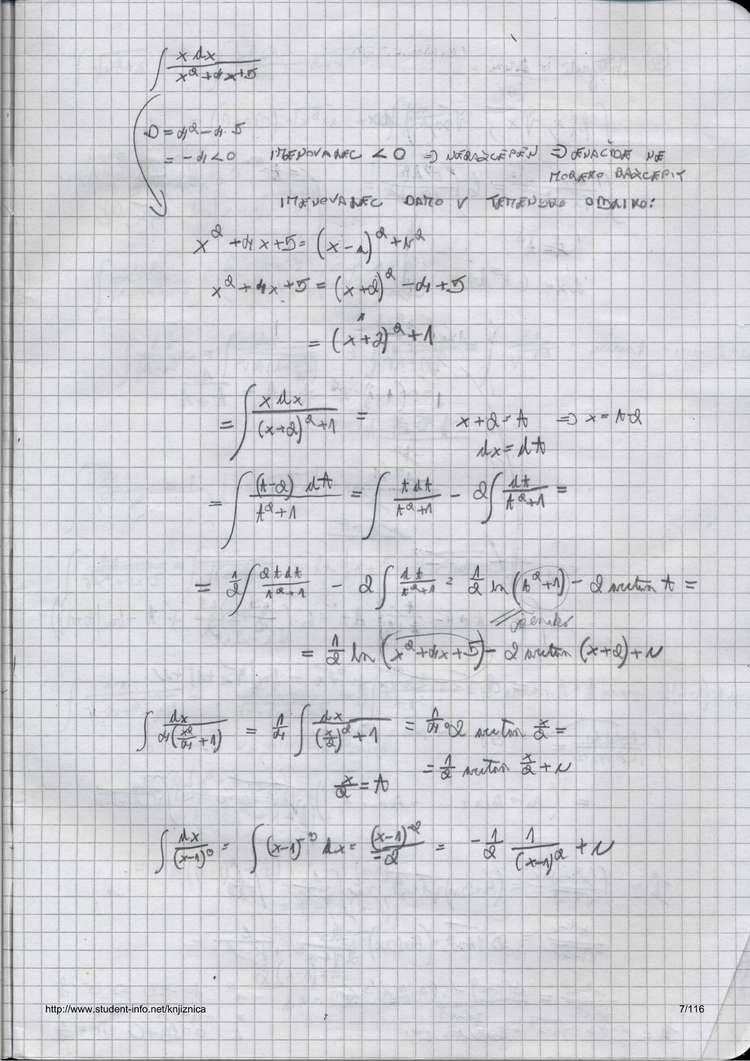 ∫ x dx / (x² + 4x + 5)
D = 4² - 4·5
= -4 < 0 IMENOVALEC < 0 ⇒ NERAZCEPEN ⇒ ENAČBE NE
MOREMO RAZCEPIT
IMENOVALEC DAMO V TEMENSKO OBLIKO:
x² + 4x + 5 = (x - )² + ²
x² + 4x + 5 = (x+2)² - 4 + 5
= (x+2)² + 1
= ∫ x dx / ((x+2)² + 1) = x + 2 = t ⇒ x = t-2
dx = dt
= ∫ (t-2) dt / (t² + 1) = ∫ t dt / (t² + 1) - 2 ∫ dt / (t² + 1) =
= 1/2 ∫ 2t dt / (t² + 1) - 2 ∫ dt / (t² + 1) = 1/2 ln (t² + 1) - 2 arctan t =
= 1/2 ln (x² + 4x + 5) - 2 arctan (x+2) + c
∫ dx / (4(x²/4 + 1)) = 1/4 ∫ dx / ((x/2)² + 1) = 1/4 · 2 arctan x/2 =
x/2 = t = 1/2 arctan x/2 + c
∫ dx / (x-1)³ = ∫ (x-1)⁻³ dx = (x-1)⁻² / -2 = -1/2 1/(x-1)² + c
http://www.student-info.net/knjiznica 7/116